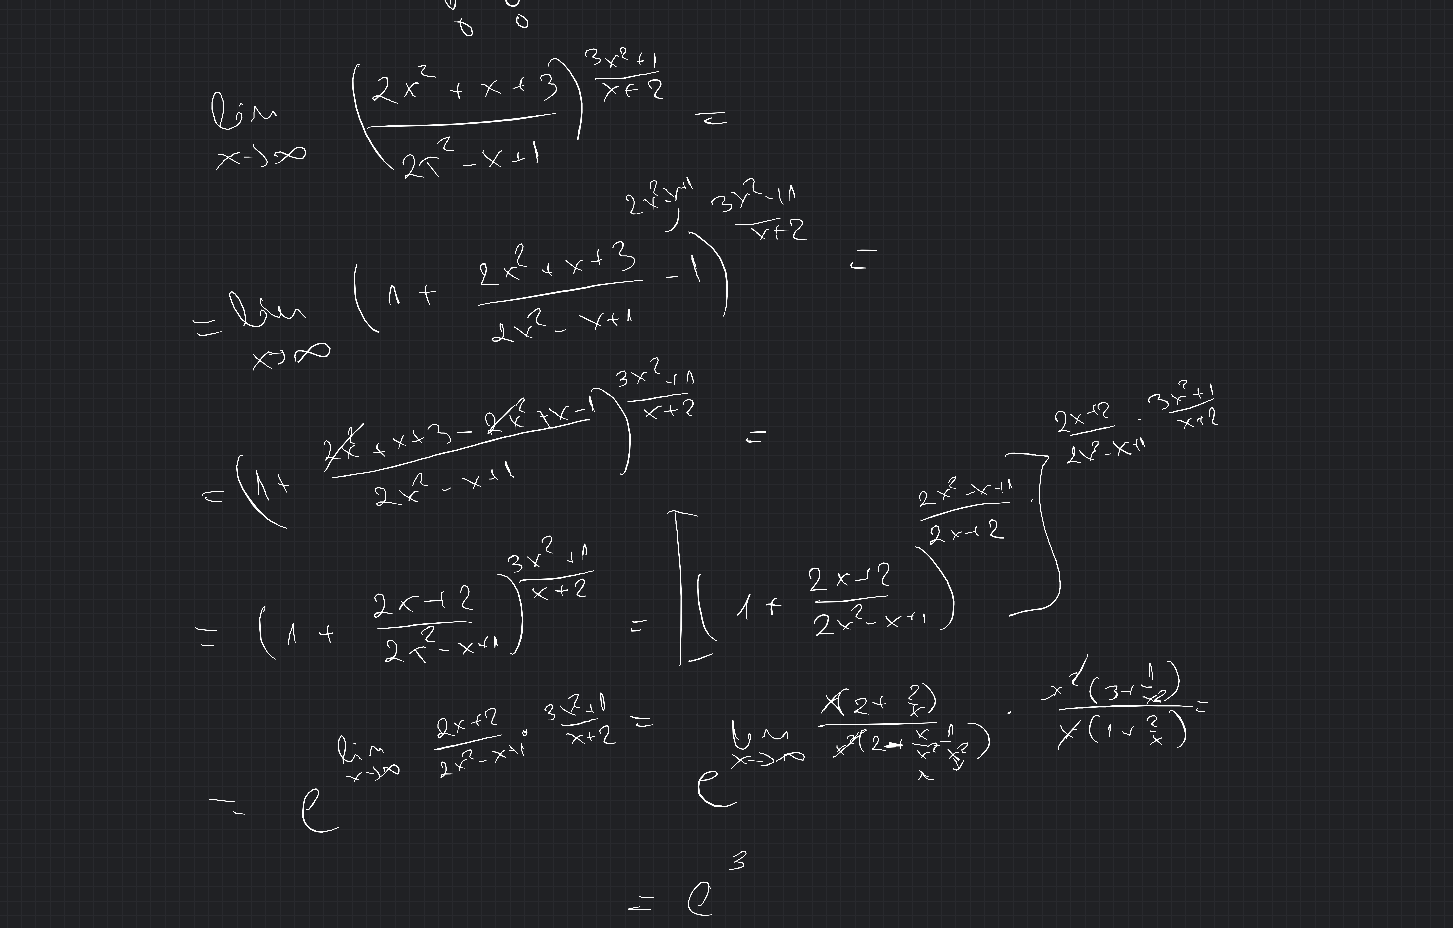 lim x→∞ ((2x² + x + 3)/(2x² - x + 1))^((3x² + 1)/(x + 2)) =
= lim x→∞ (1 + (2x² + x + 3)/(2x² - x + 1) - 1)^((3x² + 1)/(x + 2)) =
= (1 + (2x² + x + 3 - 2x² + x - 1)/(2x² - x + 1))^((3x² + 1)/(x + 2)) =
= (1 + (2x + 2)/(2x² - x + 1))^((3x² + 1)/(x + 2)) = [(1 + (2x + 2)/(2x² - x + 1))^((2x² - x + 1)/(2x + 2))]^((2x + 2)/(2x² - x + 1) · (3x² + 1)/(x + 2))
= e^(lim x→∞ (2x + 2)/(2x² - x + 1) · (3x² + 1)/(x + 2)) = e^(lim x→∞ x(2 + 2/x)/(x²(2 - x/x² + 1/x²)) · x²(3 + 1/x²)/(x(1 + 2/x))) =
= e³